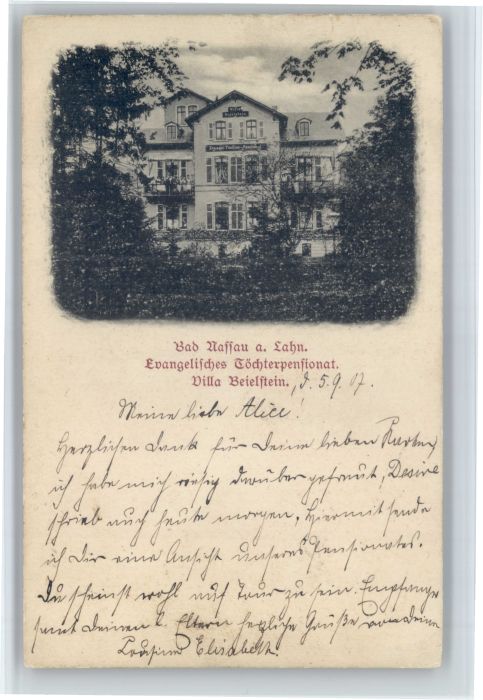 Bad Nassau a. Lahn.
Evangelisches Töchterpensionat.
Villa Beielstein., d. 5.9.07.
Meine liebe Alice!
Herzlichen Dank für Deine lieben Karten,
ich habe mich riesig darüber gefreut, Desirée
schrieb auch heute morgen, hiermit sende
ich Dir eine Ansicht unseres Pensionates.
Du scheinst wohl auf Tour zu sein. Empfange
samt Deinen l. Eltern herzliche Grüße von Deiner
Cousine Elisabeth.